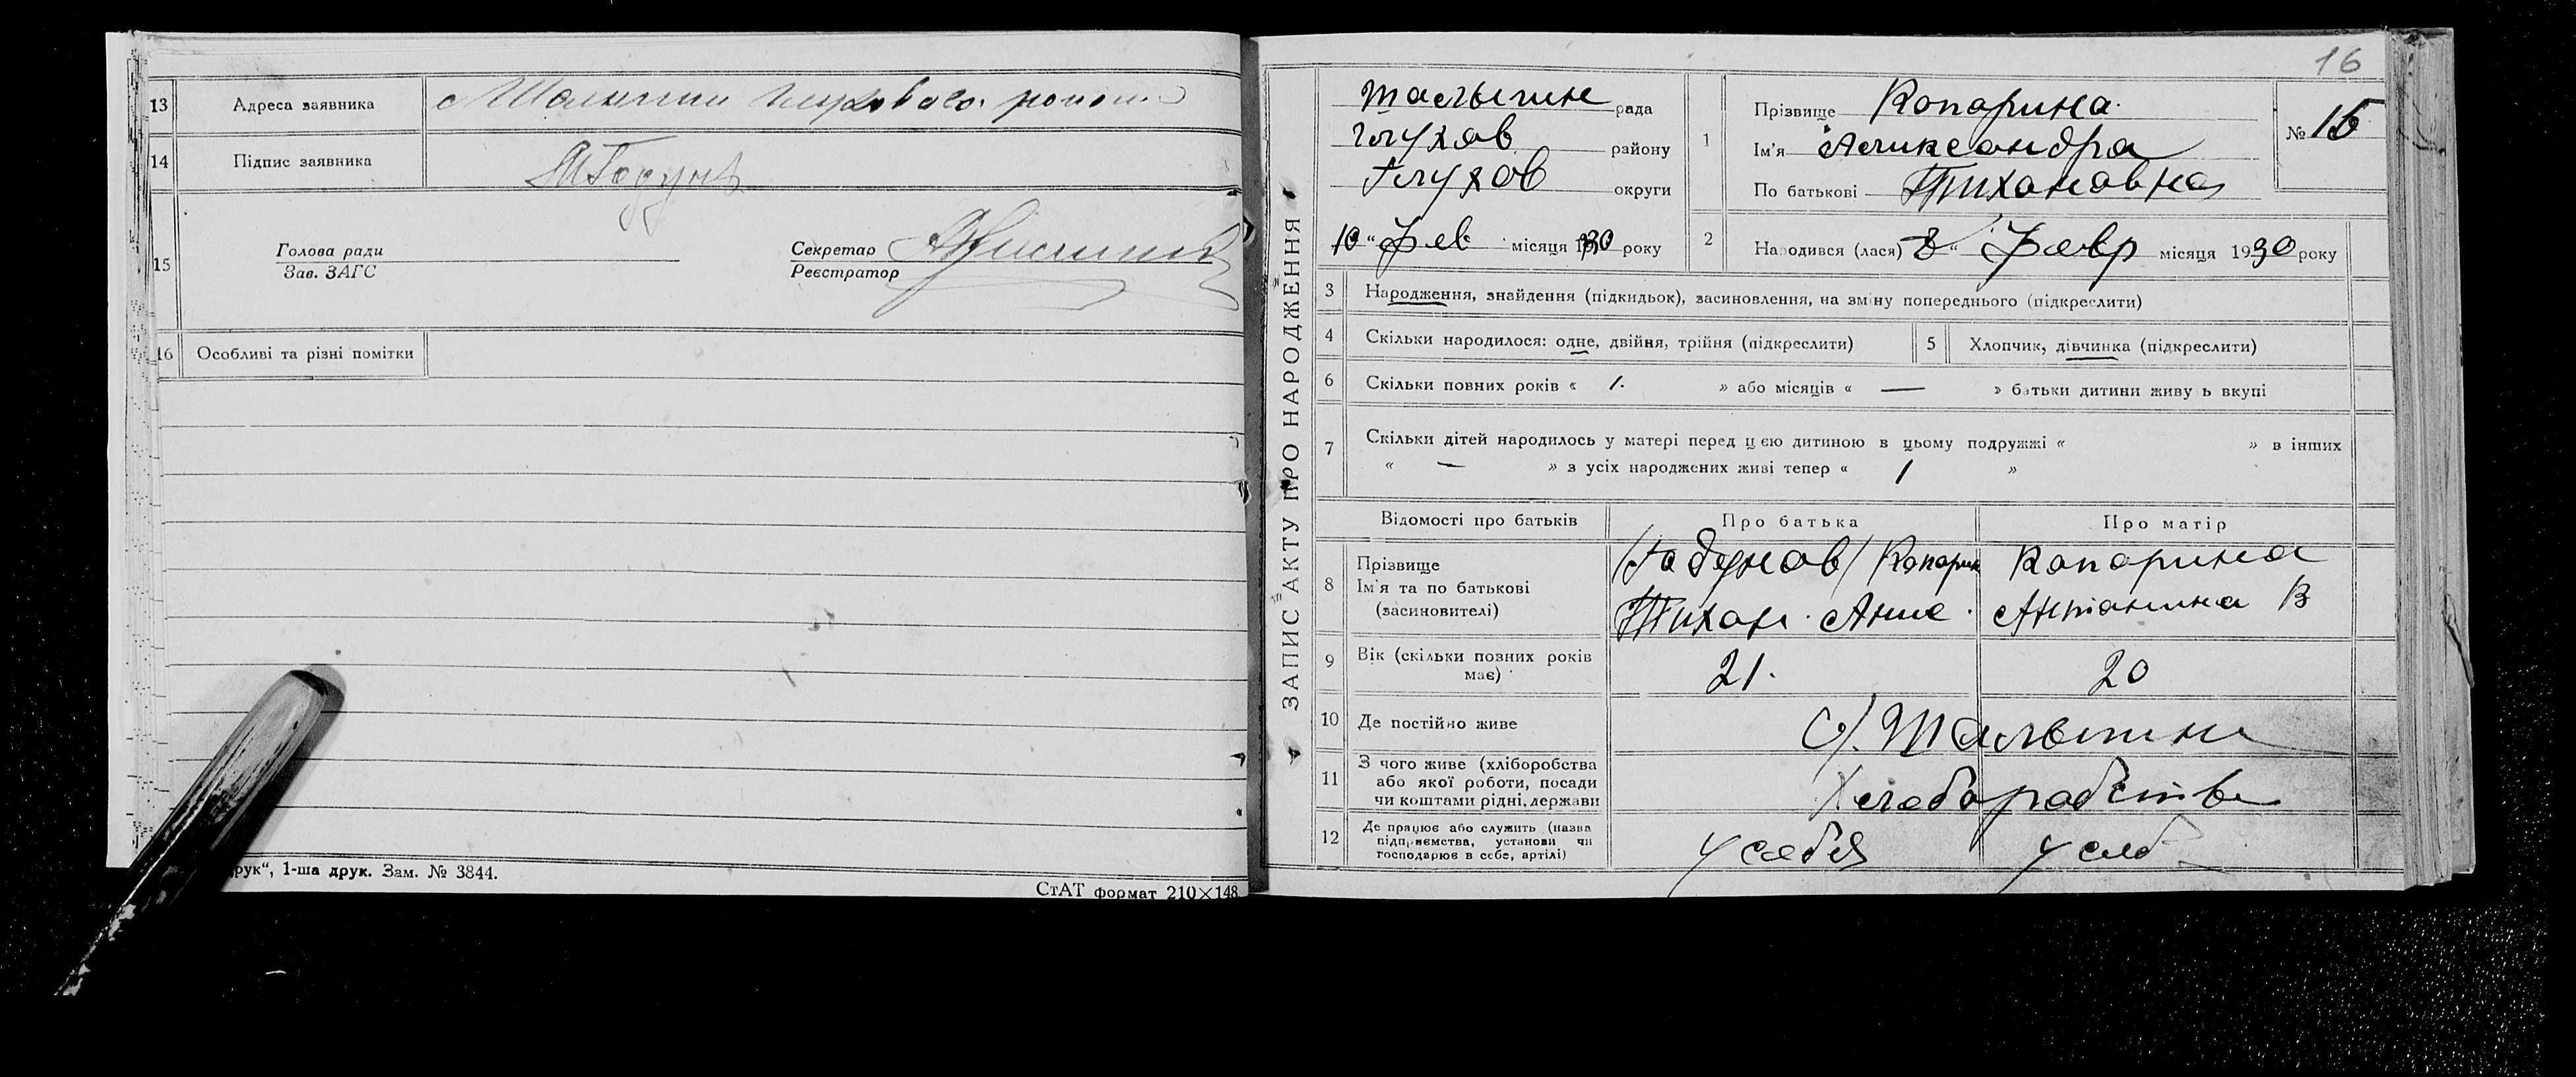 13 Адреса заявника с Шалыгин Глуховсого района
14 Підпис заявника ТГодунов
15 Голова ради
Зав. ЗАГС
Секретар
Реєстратор
16 Особливі та різні помітки
друк“, 1-ша друк. Зам. № 3844.
СтАТ формат 210×148
16
ЗАПИС АКТУ ПРО НАРОДЖЕННЯ
Шалыгин рада
Глухов району
Глухов округи
10 “ Фев місяця 1930 року
1 Прізвище Копарина
Ім'я Аликсандра
По батькові Тихановна
№ 15
2 Народився (лася) 8 “ Февр місяця 1930 року
3 Народження, знайдення (підкидьок), засиновлення, на зміну попереднього (підкреслити)
4 Скільки народилося: одне, двійня, трійня (підкреслити)
5 Хлопчик, дівчинка (підкреслити)
6 Скільки повних років « 1. » або місяців « — » батьки дитини живуть вкупі
7 Скільки дітей народилось у матері перед цією дитиною в цьому подружжі « » в інших
« — » з усіх народжених живі тепер « 1 »
Відомості про батьків Про батька Про матір
8 Прізвище
Ім'я та по батькові
(засиновителі)
(Годунов) Копарин Копарина
Тихон. Анис. Антанина В
9 Вік (скільки повних років має) 21. 20
10 Де постійно живе С/. Шалыгине
11 З чого живе (хліборобства
або якої роботи, посади
чи коштами рідні, держави
Хлебоработва
12 Де працює або служить (назва
підприємства, установи чи
господарює в себе, артілі)
у себя у себ